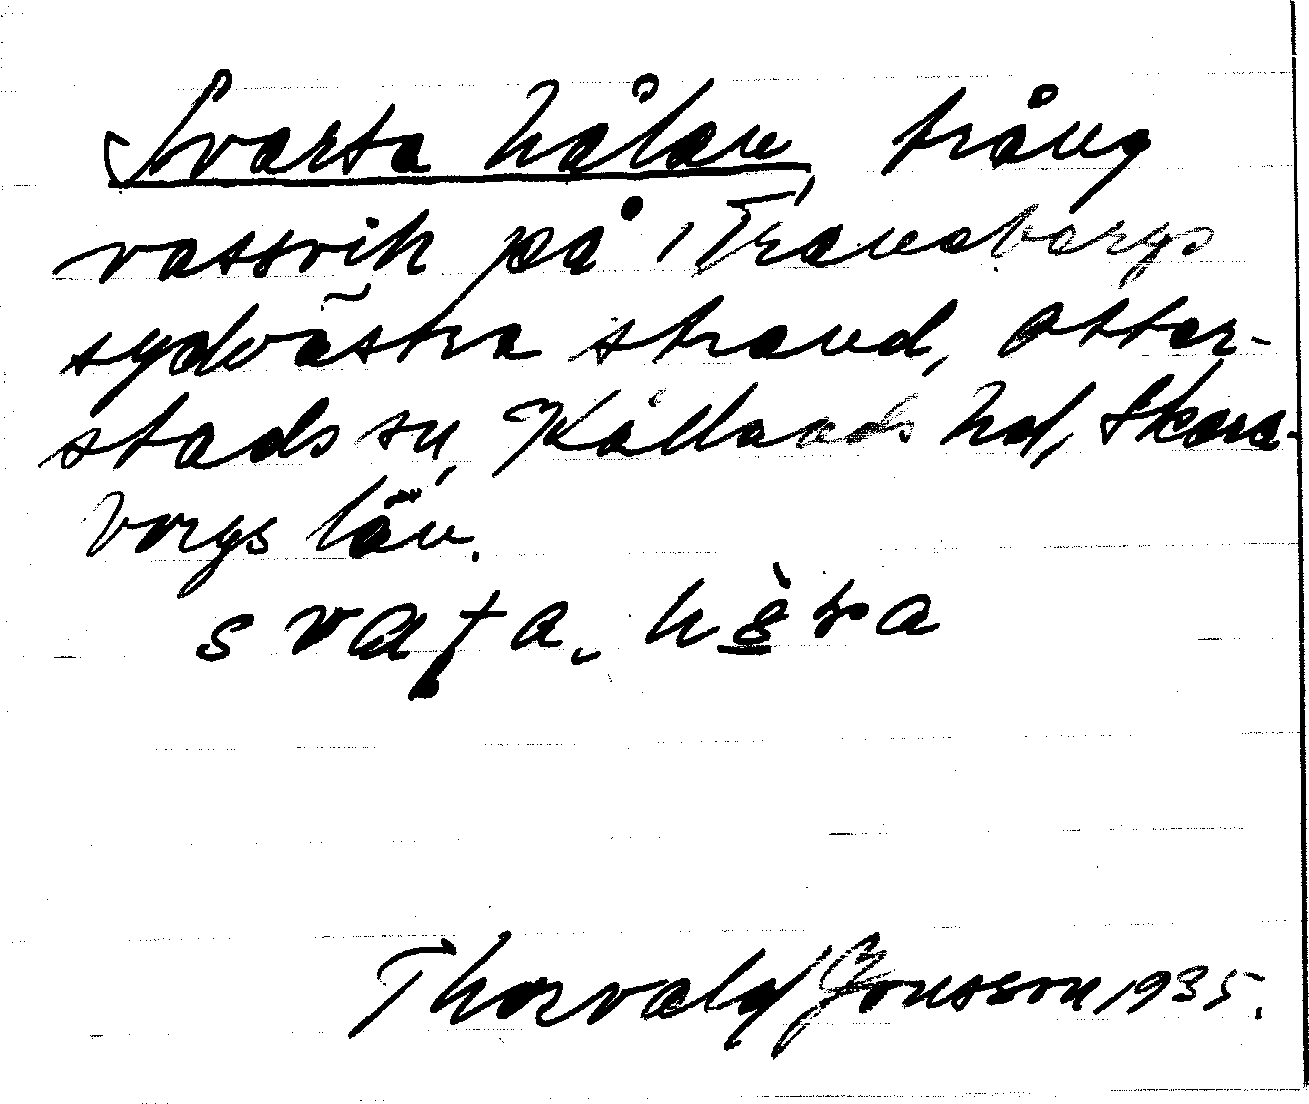 Svarta hålan, trång
vassvik på Traneborgs
sydvästra strand, Otter-
stads sn, Kållands hd, Skara-
borgs län.
svaṭa
Thorvald Jonsson 1935.